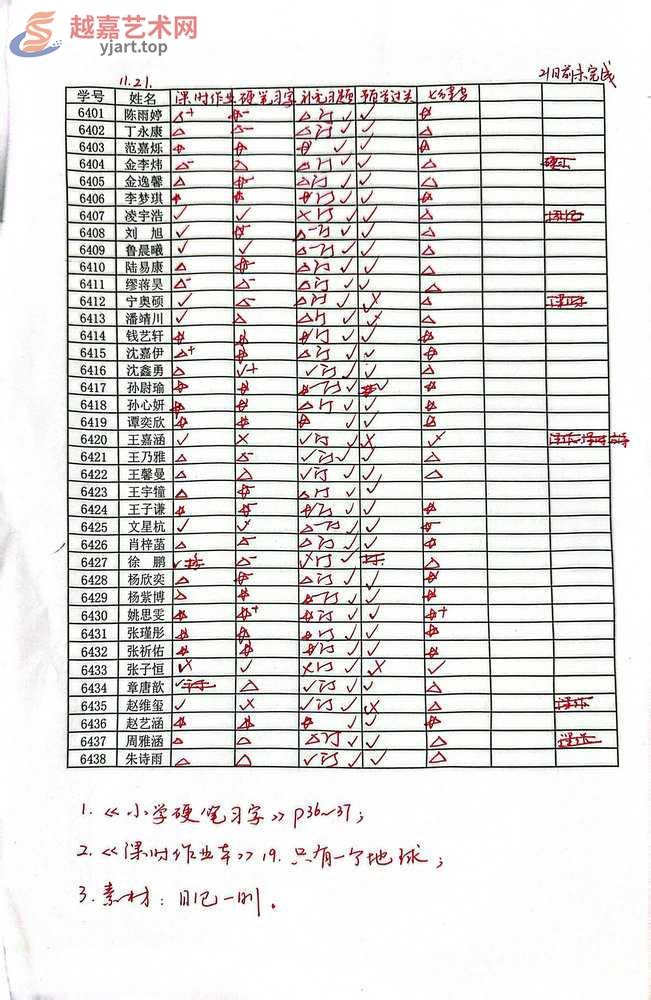 越嘉艺术网
yjart.top
11.21.
21日前未完成
学号 姓名 课时作业 硬笔习字 补充习题
6401 陈雨婷
6402 丁永康
6403 范嘉烁
6404 金李炜
6405 金逸馨
6406 李梦琪
6407 凌宇浩
6408 刘 旭
6409 鲁晨曦
6410 陆易康
6411 缪蒋昊
6412 宁奥硕
6413 潘靖川
6414 钱艺轩
6415 沈嘉伊
6416 沈鑫勇
6417 孙尉瑜
6418 孙心妍
6419 谭奕欣
6420 王嘉涵
6421 王乃雅
6422 王馨曼
6423 王宇犝
6424 王子谦
6425 文星杭
6426 肖梓菡
6427 徐 鹏
6428 杨欣奕
6429 杨紫博
6430 姚思雯
6431 张瑾彤
6432 张祈佑
6433 张子恒
6434 章唐歆
6435 赵维玺
6436 赵艺涵
6437 周雅涵
6438 朱诗雨
1.《小学硬笔习字》P36~37;
2.《课时作业本》19.只有一个地球;
3.素材:自己一则。